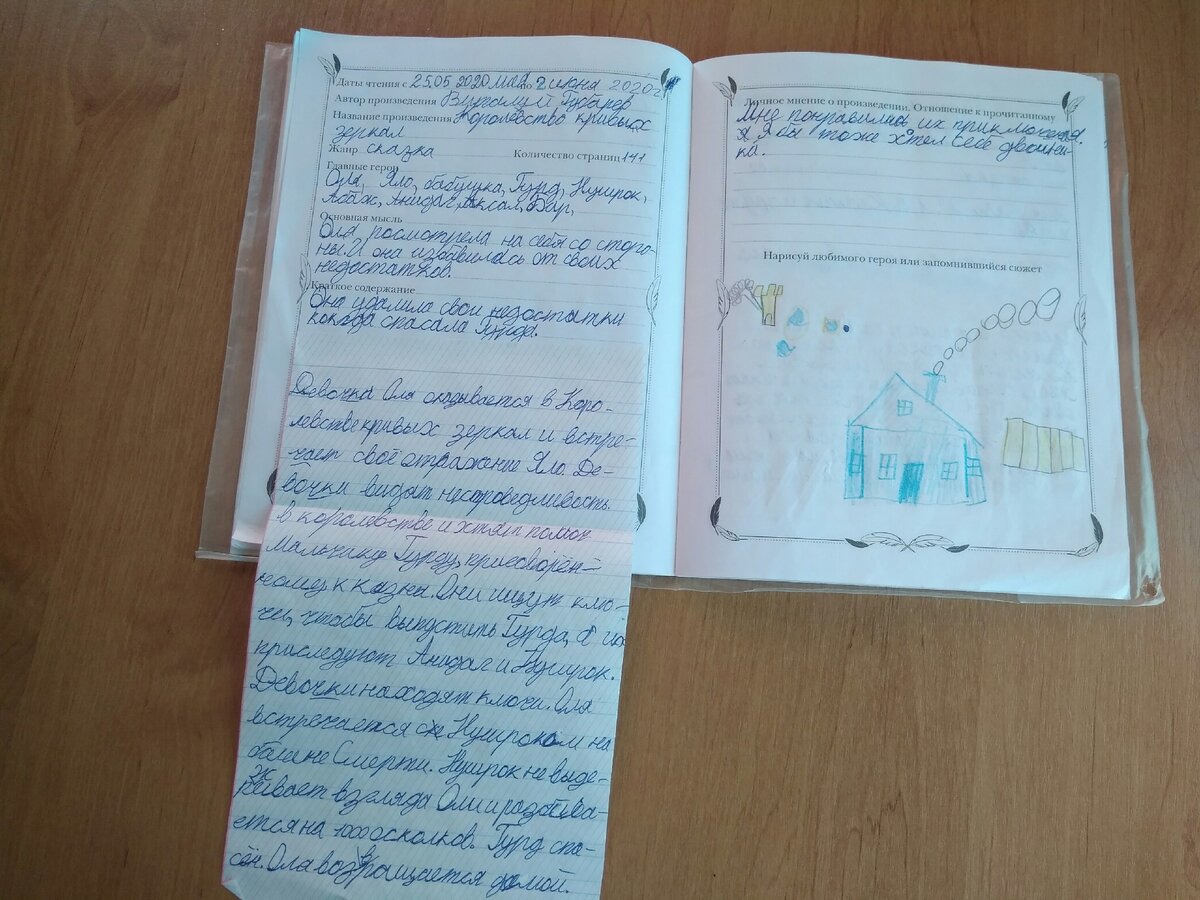 Даты чтения с 25.05 2020 мая по 2 июня 2020г.
Автор произведения Виталий Губарев
Название произведения Королевство кривых
зеркал
Жанр сказка Количество страниц 141
Главные герои
Оля, Яло, бабушка, Гурд, Нушрок,
Абаж, Анидаг, Аксал, Бар,
Основная мысль
Оля посмотрела на себя со сторо-
ны. И она избавилась от своих
недостатков.
Краткое содержание
Она удалила свои недостатки
когда спасала Гурда.
Девочка Оля оказывается в Коро-
левстве кривых зеркал и встре-
чает своё отражение Яло. Де-
вочки видят неспроведливость
в королевстве и хтят помоч
мальчику Гурду, приговорён-
ному к казни. Они ищут клю-
чи, чтобы выпустить Гурда, а их
приследуют Анидаг и Нушрок.
Девочки находят ключи. Оля
встречается с Нушроком на
башне Смерти. Нушрок не выде-
живает взгляда Оли и разбива-
ется на 1000 осколков. Гурд спа-
сён. Оля возвращается домой.
Личное мнение о произведении. Отношение к прочитанному
Мне понравились их приключения
Я бы тоже хтел себе двойни-
ка.
Нарисуй любимого героя или запомнившийся сюжет